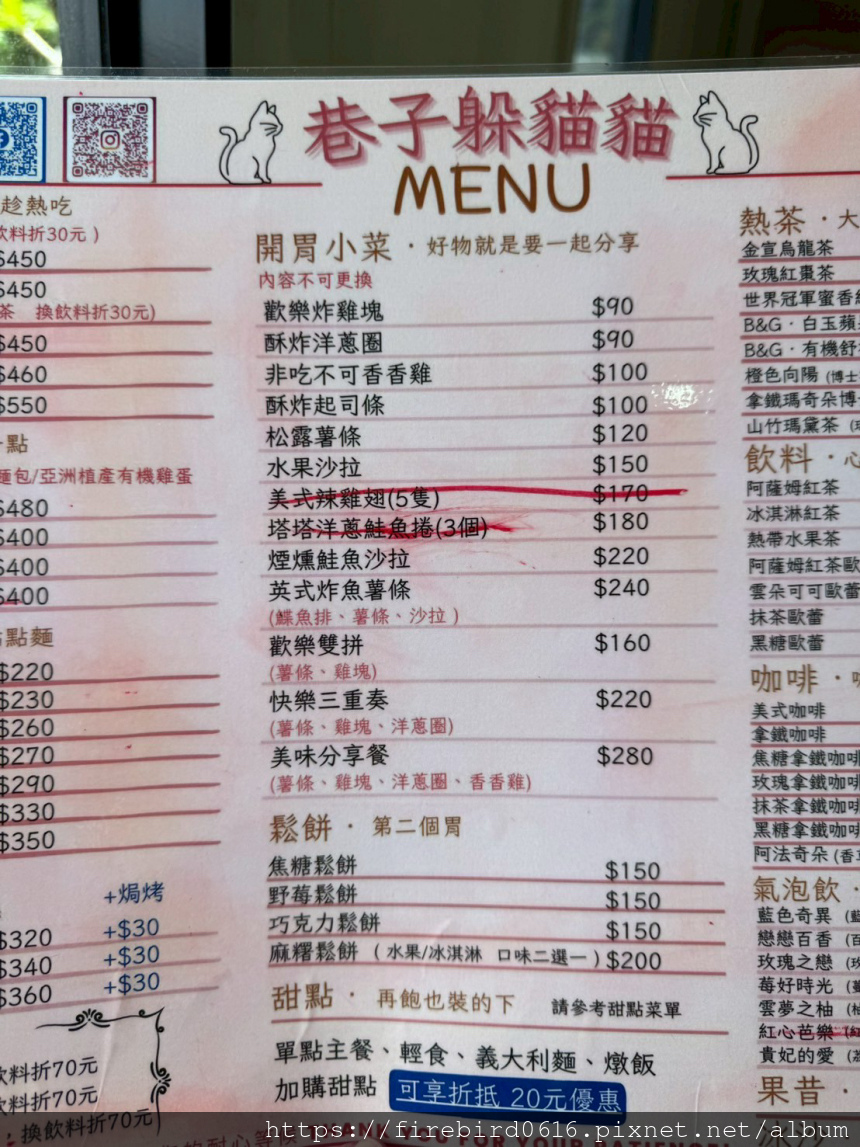 巷子躲貓貓
MENU
趁熱吃
飲料折30元 )
$450
$450
茶 換飲料折30元)
$450
$460
$550
點
麵包/亞洲植產有機雞蛋
$480
$400
$400
$400
點麵
$220
$230
$260
$270
$290
$330
$350
+焗烤
$320 +$30
$340 +$30
$360 +$30
飲料折70元
飲料折70元
換飲料折70元)
開胃小菜 · 好物就是要一起分享
內容不可更換
歡樂炸雞塊 $90
酥炸洋蔥圈 $90
非吃不可香香雞 $100
酥炸起司條 $100
松露薯條 $120
水果沙拉 $150
美式辣雞翅(5隻) $170
塔塔洋蔥鮭魚捲(3個) $180
煙燻鮭魚沙拉 $220
英式炸魚薯條 $240
(鰈魚排、薯條、沙拉 )
歡樂雙拼 $160
(薯條、雞塊)
快樂三重奏 $220
(薯條、雞塊、洋蔥圈)
美味分享餐 $280
(薯條、雞塊、洋蔥圈、香香雞)
鬆餅 · 第二個胃
焦糖鬆餅 $150
野莓鬆餅 $150
巧克力鬆餅 $150
麻糬鬆餅 ( 水果/冰淇淋 口味二選一 ) $200
甜點 · 再飽也裝的下 請參考甜點菜單
單點主餐、輕食、義大利麵、燉飯
加購甜點 可享折抵 20元優惠
熱茶 · 大
金宣烏龍茶
玫瑰紅棗茶
世界冠軍蜜香紅
B&G · 白玉蘋
B&G · 有機舒
橙色向陽 (博士
拿鐵瑪奇朵博士
山竹瑪黛茶
飲料 · 心
阿薩姆紅茶
冰淇淋紅茶
熱帶水果茶
阿薩姆紅茶歐
雲朵可可歐蕾
抹茶歐蕾
黑糖歐蕾
咖啡 ·
美式咖啡
拿鐵咖啡
焦糖拿鐵咖啡
玫瑰拿鐵咖啡
抹茶拿鐵咖啡
黑糖拿鐵咖啡
阿法奇朵 (香
氣泡飲 ·
藍色奇異 (藍
戀戀百香 (百
玫瑰之戀 (玫
莓好時光
雲夢之柚 (柚
紅心芭樂 (紅
貴妃的愛
果昔 ·
https://firebird0616.pixnet.net/album